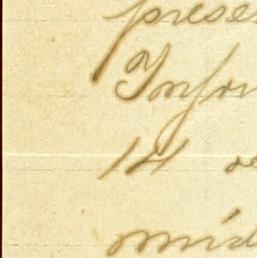 prese
Infor
14 
mid